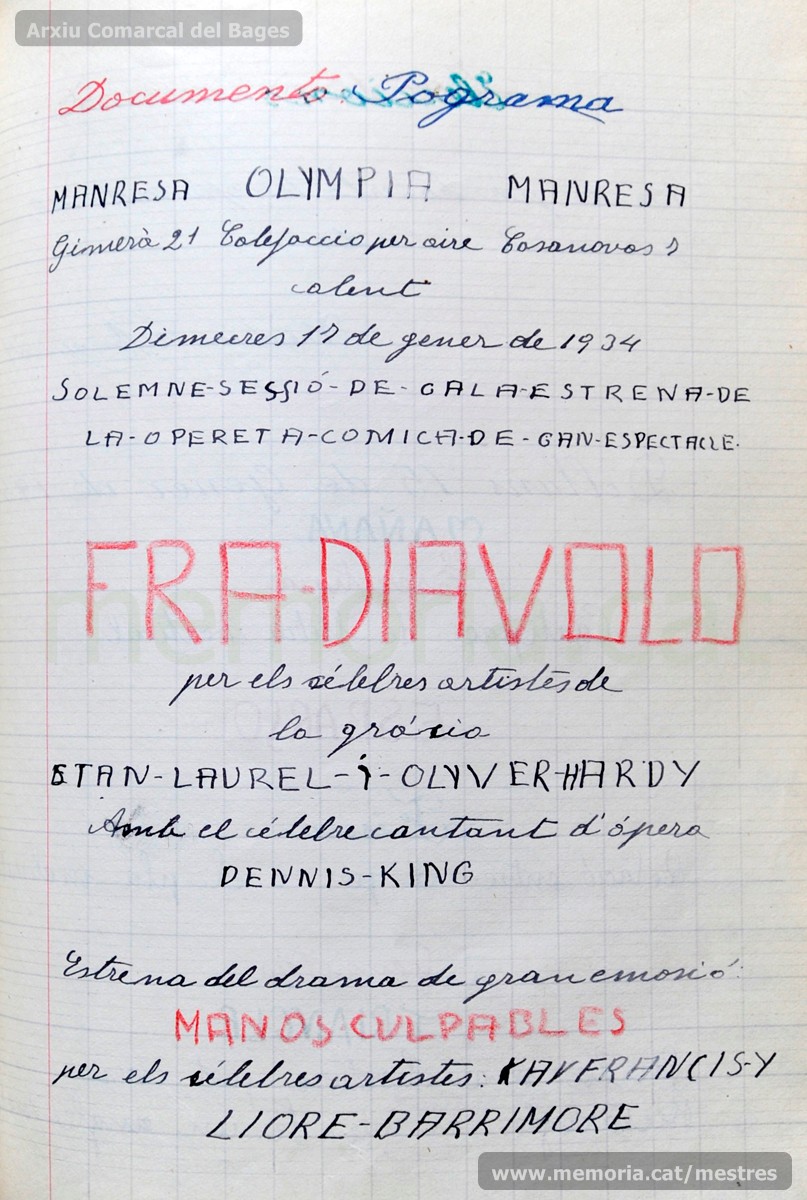 Arxiu Comarcal del Bages
Documento Pograma
MANRESA OLYMPIA MANRESA
Gimerà 21 Calefaccio per aire Casanovas 7
calent
Dimecres 17 de gener de 1934
SOLEMNE-SESSIÓ-DE-GALA-ESTRENA-DE
LA-OPERETA-COMICA-DE-GAN-ESPECTACLE.
FRA-DIAVOLO
per els célebres artistes de
la grácia
STAN-LAUREL-I-OLYVER-HARDY
Amb el célebre cantant d'ópera
DENNIS-KING
Estrena del drama de gran emosió:
MANOS CULPABLES
per els célebres artistes: KAY FRANCIS-Y
LIORE-BARRIMORE
memoria.cat
www.memoria.cat/mestres